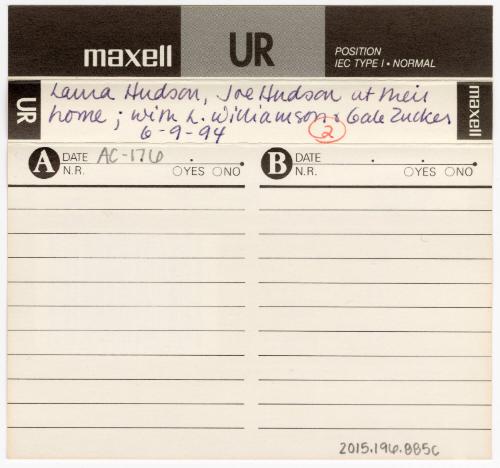 maxell UR POSITION
IEC TYPE I • NORMAL
UR Laura Hudson, Joe Hudson at their maxell
home; with L. Williamson & Gale Zucker
6-9-94 2
A DATE AC-176 . . B DATE . .
N.R. ○YES ○NO N.R. ○YES ○NO
2015.196.885c